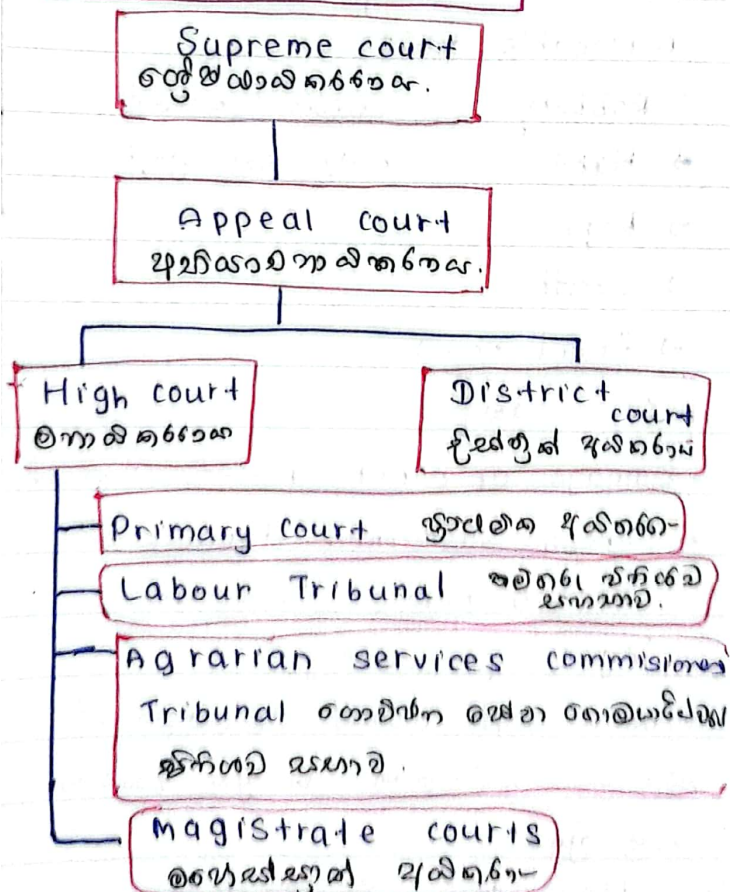 Supreme court
ශ්‍රේෂ්ඨාධිකරණය.
Appeal court
අභියාචනාධිකරණය.
High court
මහාධිකරණය
District
court
දිස්ත්‍රික් අධිකරණ
Primary court ප්‍රාථමික අධිකරණ
Labour Tribunal කම්කරු විනිශ්චය
සභාව.
Agrarian services commisioner
Tribunal ගොවිජන සේවා කොමසාරිස්
විනිශ්චය සභාව.
Magistrate courts
මහේස්ත්‍රාත් අධිකරණ